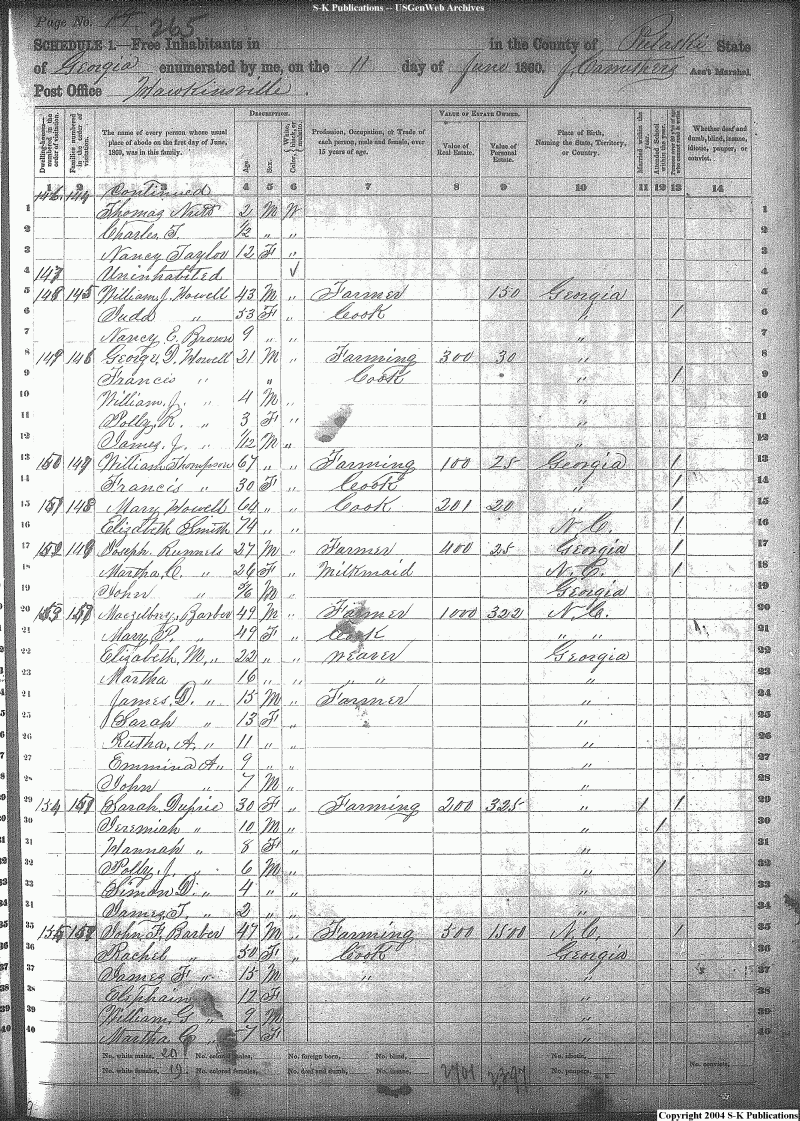 S-K Publications -- USGenWeb Archives
Page No. 265
SCHEDULE 1.—Free Inhabitants in in the County of Pulaski State
of Georgia enumerated by me, on the 11 day of June 1860. Ass't Marshal.
Post Office Hawkinsville
Dwelling-houses—numbered in the order of visitation. Families numbered in the order of visitation. The name of every person whose usual place of abode on the first day of June, 1860, was in this family. DESCRIPTION. Age. Sex. Color Profession, Occupation, or Trade of each person, male and female, over 15 years of age. VALUE OF ESTATE OWNED. Value of Real Estate. Value of Personal Estate. Place of Birth, Naming the State, Territory, or Country. Married within the year. Attended School within the year. Whether deaf and dumb, blind, insane, idiotic, pauper, or convict.
1 2 3 4 5 6 7 8 9 10 11 12 13 14
146 144 Continued
1 Thomas 2 M W 1
2 Charles T. 1/2 " " 2
3 Nancy Taylor 12 F " 3
4 147 Uninhabited 4
5 148 145 William J. Howell 43 M " Farmer 150 Georgia 5
6 Judd " 53 F " Cook " 1 6
7 Nancy E. Brown 9 " " " 7
8 149 146 George D. Howell 21 M " Farming 300 30 " 8
9 Francis " " Cook " 1 9
10 William J. " 4 M " " 10
11 Polly R. " 3 F " " 11
12 James J. " M " " 12
13 150 147 William Thompson 67 " " Farming 100 25 Georgia 1 13
14 Francis " 30 F " Cook " 1 14
15 151 148 Mary Howell 64 " " Cook 201 20 " 1 15
16 Elizabeth Smith 74 " " N.C. 1 16
17 152 149 Joseph Runnels 27 M " Farmer 400 25 Georgia 1 17
18 Martha C. " 26 F " Milkmaid N.C. 1 18
19 John " M " Georgia 19
20 153 150 Barber 49 M " Farmer 1000 322 N.C. 20
21 Mary P. " 49 F " Cook " " 21
22 Elizabeth M. " 22 " " weaver Georgia 22
23 Martha " 16 " " " " " 23
24 James D. " 15 M " Farmer " 24
25 Sarah " 13 F " " 25
26 Rutha A. " 11 " " " 26
27 Emmina A. " 9 " " " 27
28 John " 7 M " 28
29 154 151 Sarah Dupree 30 F " Farming 200 325 " 1 1 29
30 Jeremiah " 10 M " " 1 30
31 Hannah " 8 F " " 31
32 Polly J. " 6 M " " 1 32
33 Simon D. " 4 " " 33
34 James T. " 2 " " 34
35 155 152 John F. Barber 47 M " Farming 500 1500 N.C. 1 35
36 Rachel " 50 F " Cook Georgia 36
37 James F. " 15 M " 37
38 12 F 38
39 William G " 9 M 39
40 Martha C " 7 F 40
No. white males, 20 No. colored males, No. foreign born, No. blind, No. idiotic, No. convicts,
No. white females, 19 No. colored females, No. deaf and dumb, No. insane, 2701 2397 No. paupers,
Copyright 2004 S-K Publications